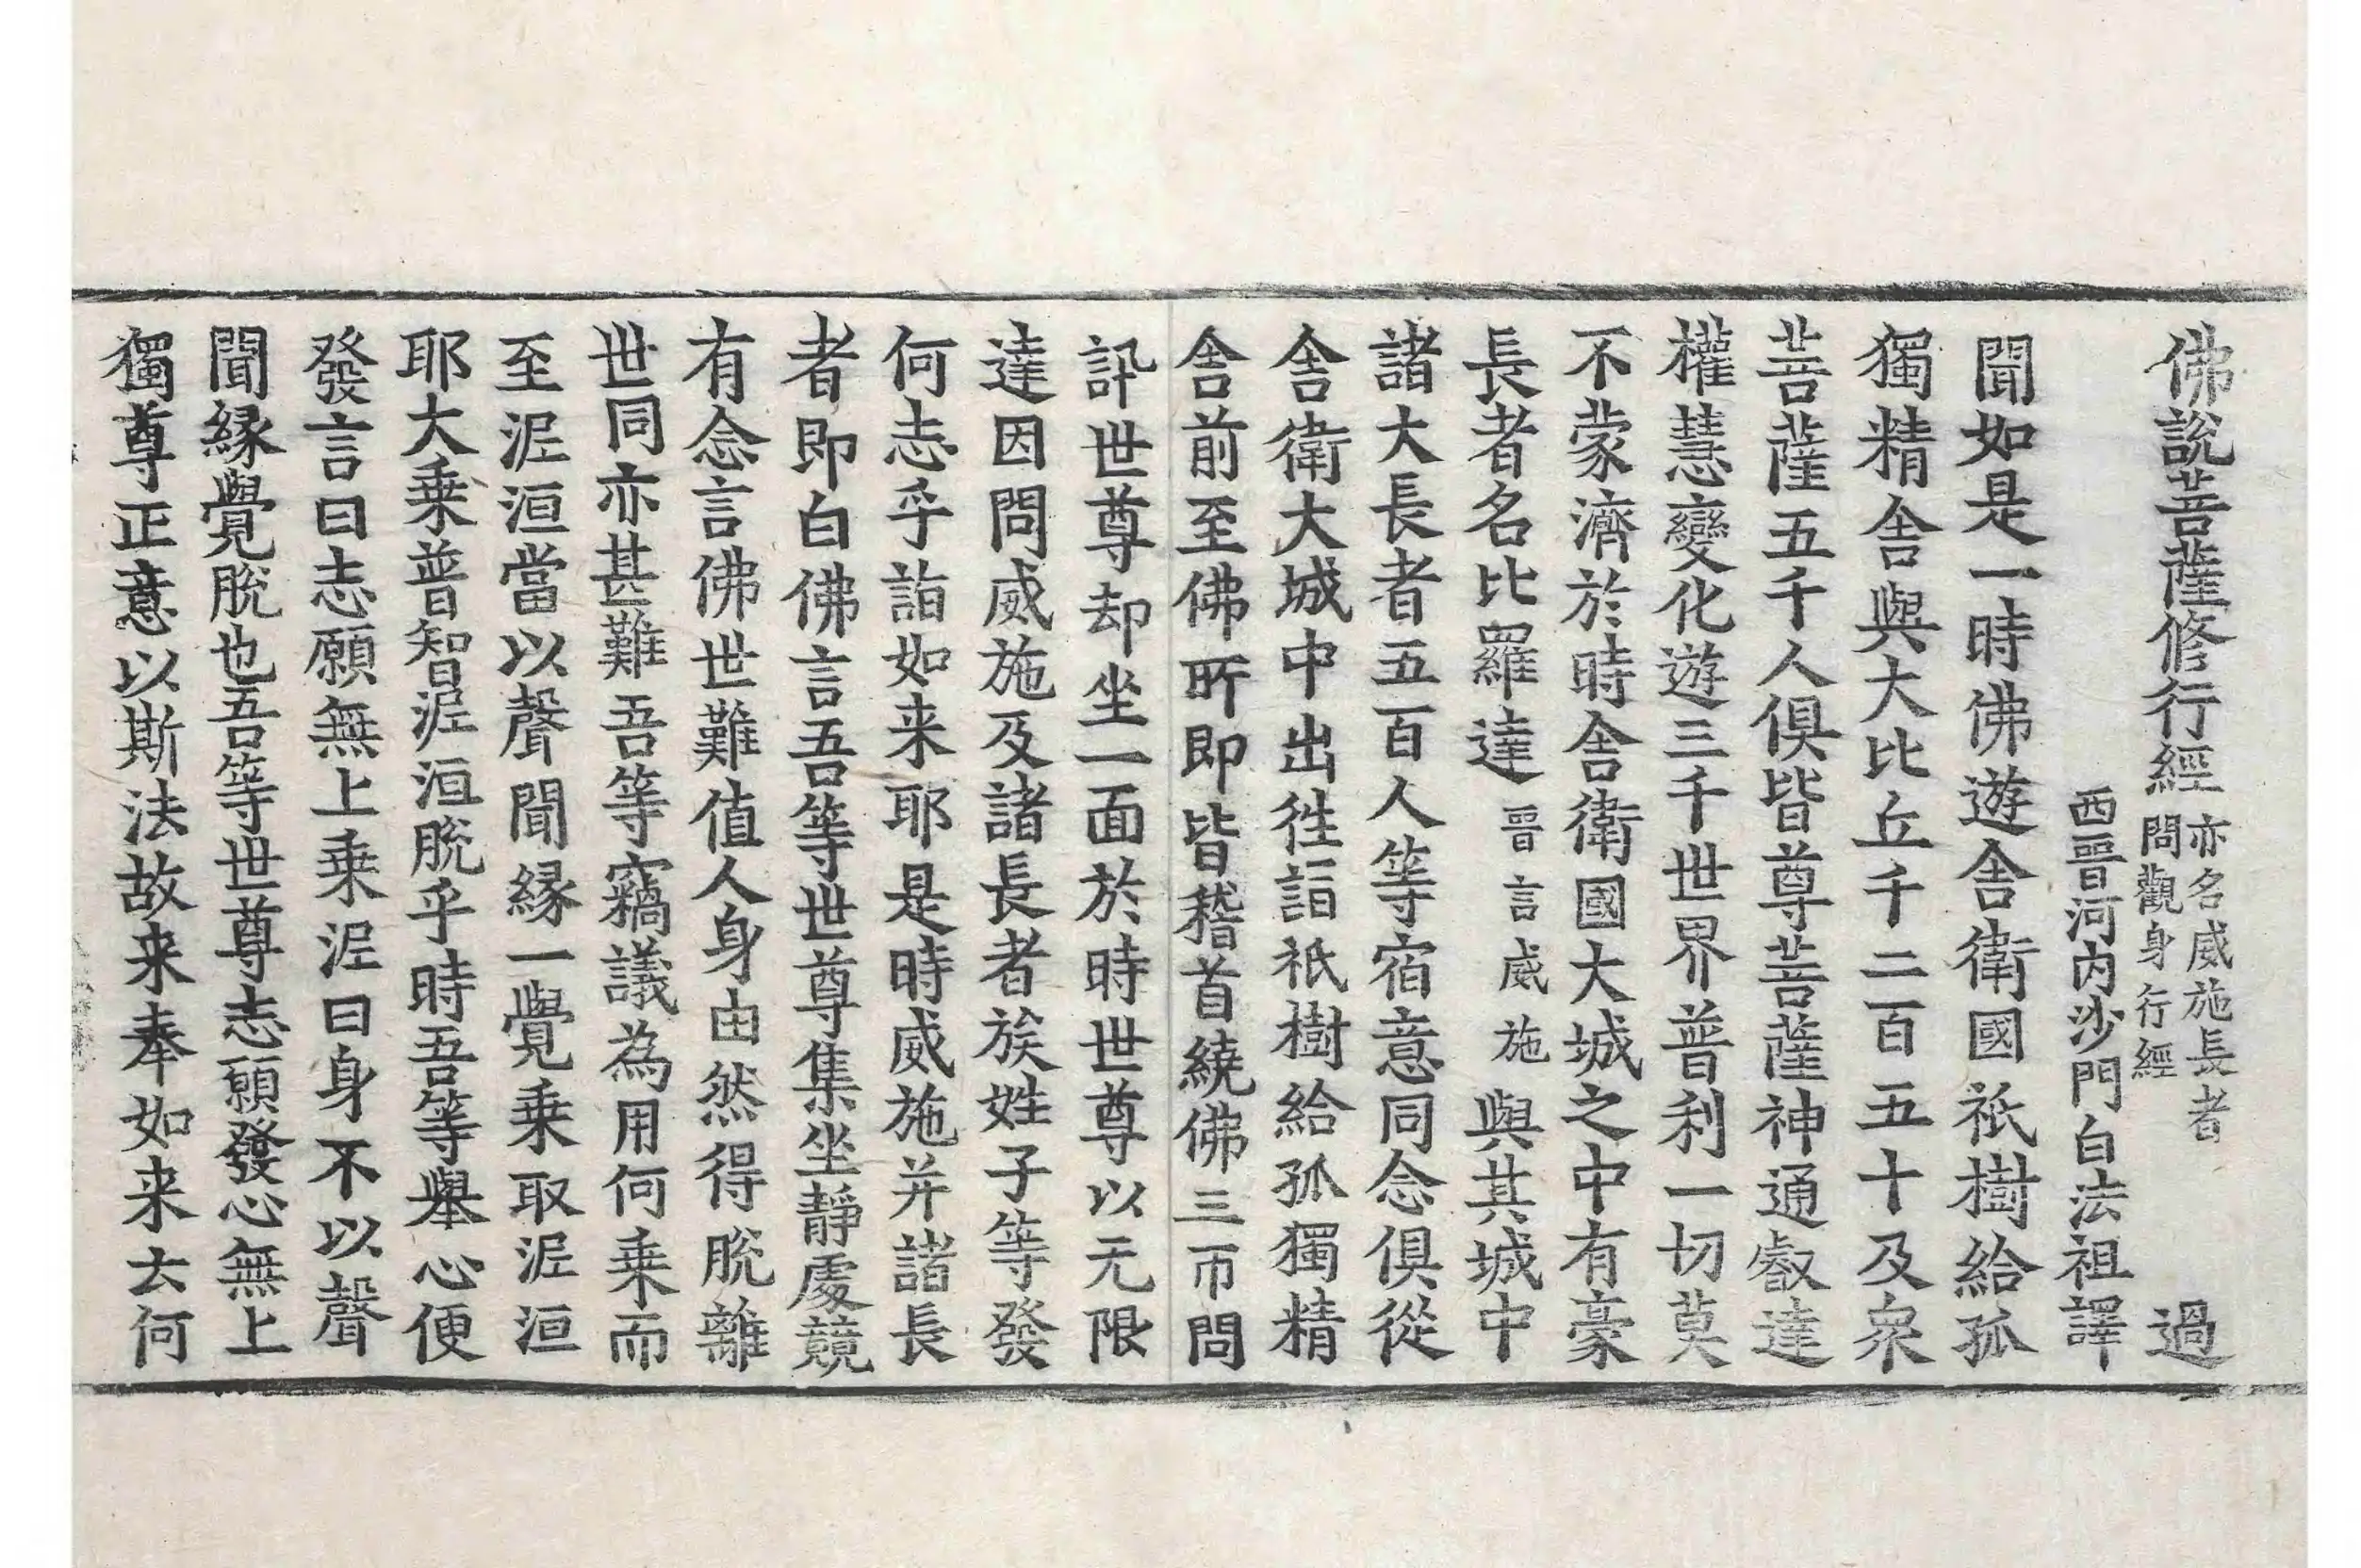 佛說菩薩修行經 亦名威施長者問觀身行經 過
西晉河內沙門白法祖譯
聞如是一時佛遊舍衛國祇樹給孤
獨精舍與大比丘千二百五十及衆
菩薩五千人俱皆尊菩薩神通叡達
權慧變化遊三千世界普利一切莫
不蒙濟於時舍衛國大城之中有豪
長者名比羅達 晉言威施 與其城中
諸大長者五百人等宿意同念俱從
舍衛大城中出往詣祇樹給孤獨精
舍前至佛所即皆稽首繞佛三帀問
訊世尊却坐一面於時世尊以无限
達因問威施及諸長者族姓子等發
何志乎詣如来耶是時威施并諸長
者即白佛言吾等世尊集坐靜處競
有念言佛世難值人身由然得脫離
世同亦甚難吾等竊議為用何乗而
至泥洹當以聲聞縁一覺乗取泥洹
耶大乗普智泥洹脫乎時吾等舉心便
發言曰志願無上乗泥曰身不以聲
聞縁覺脫也吾等世尊志願發心無上
獨尊正意以斯法故来奉如来去何